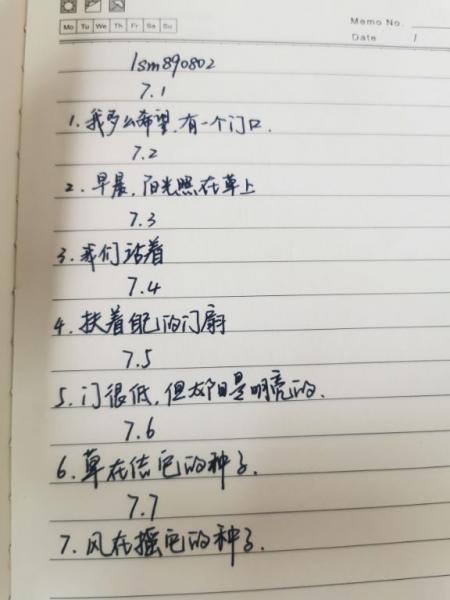 Mo Tu We Th Fr Sa Su
Memo No.
Date /
lsm890802
7.1
1.我多么希望,有一个门口.
7.2
2.早晨,阳光照在草上
7.3
3.我们站着
7.4
4.扶着自己的门扇
7.5
5.门很低,但太阳是明亮的.
7.6
6.草在结它的种子.
7.7
7.风在摇它的种子.